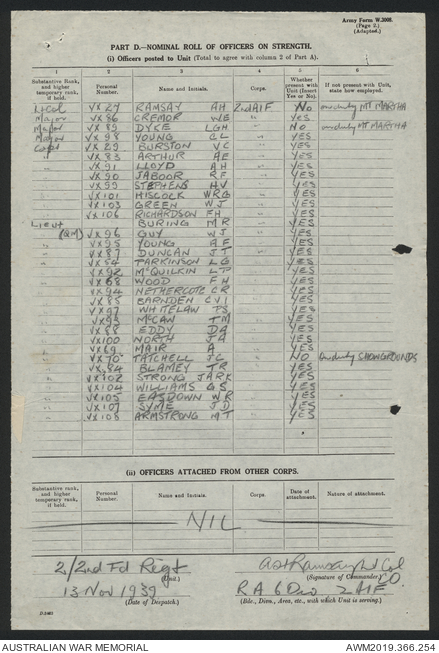 Army Form W.3008.
(Page 2.)
(Adapted.)
PART D.—NOMINAL ROLL OF OFFICERS ON STRENGTH.
(i) Officers posted to Unit (Total to agree with column 2 of Part A).
1 2 3 4 5 6
Substantive Rank, and higher temporary rank, if held. Personal Number. Name and Initials. Corps. Whether present with Unit (Insert Yes or No). If not present with Unit, state how employed.
Lt Col VX 27 RAMSAY AH 2nd AIF No on duty MT MARTHA
Major VX 86 CREMOR WE " YES
Major VX 89 DYKE LGH " No on duty MT MARTHA
Major VX 98 YOUNG CL " YES
Capt VX 29 BURSTON VC " YES
" VX 83 ARTHUR AE " YES
" VX 91 LLOYD AH " YES
" VX 90 JABOOR RF " YES
" VX 99 STEPHENS HV " YES
" VX 101 HISCOCK WRG " YES
" VX 103 GREEN WJ " YES
" VX 106 RICHARDSON FH " YES
LIEUT BURING MR " YES
" (QM) VX 96 GUY WJ " YES
" VX 95 YOUNG AF " YES
" VX 87 DUNCAN JT " YES
" VX 54 PARKINSON LG " YES
" VX 92 McQUILKIN LP " YES
" VX 68 WOOD FH " YES
" VX 94 NETHERCOTE CR " YES
" VX 85 BARNDEN CVI " YES
" VX 97 WHITELAW PS " YES
" McCAW TM " YES
" VX 88 EDDY DA " YES
" VX 100 NORTH JA " YES
" VX 69 MAIR A " YES
" VX 70 TATCHELL JG " NO On duty SHOWGROUNDS
" VX 84 BLAMEY TR " YES
" VX 102 STRONG JARK " YES
" VX 104 WILLIAMS GS " YES
" VX 105 EASDOWN WR " YES
" VX 107 SYME JD " YES
" VX 108 ARMSTRONG MT " YES
(ii) OFFICERS ATTACHED FROM OTHER CORPS.
Substantive rank, and higher temporary rank, if held. Personal Number. Name and Initials. Corps. Date of attachment. Nature of attachment.
NIL
2/2nd Fd Regt AH Ramsay Lt Col
(Unit.) (Signature of Commander) C.O.
13 Nov 1939 R A 6 Div 2 AIF
(Date of Dispatch.) (Bde., Divn., Area, etc., with which Unit is serving.)
AUSTRALIAN WAR MEMORIAL AWM2019.366.254